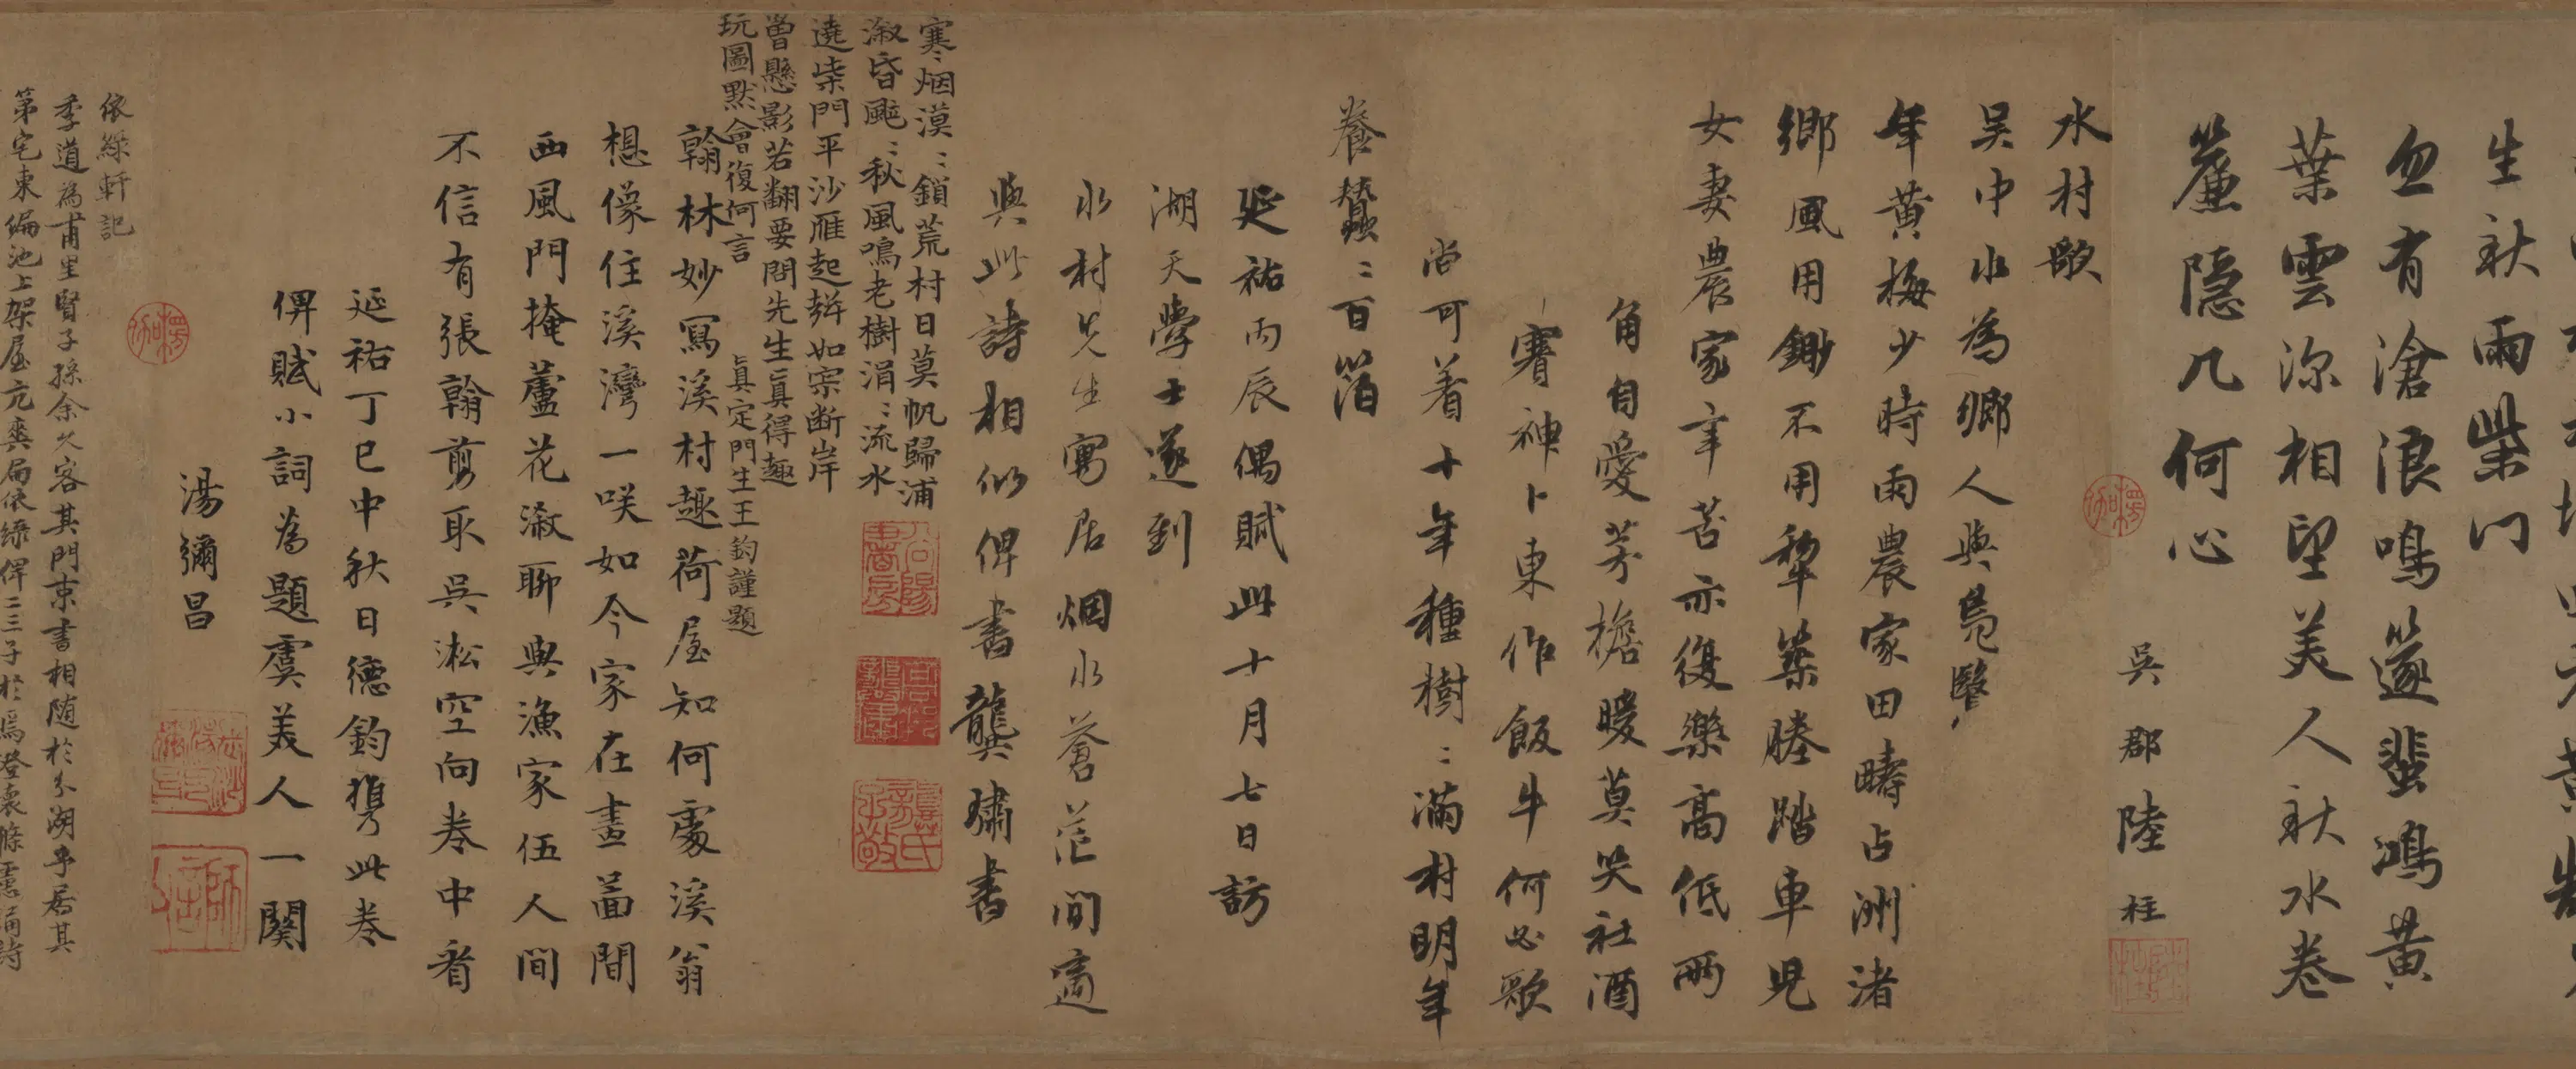 生秋雨柴門
忽有滄浪鳴邃蜚鴻黃
葉雲深相望美人秋水卷
簾隱几何心
吳郡陸柱
水村歌
吳中水為鄉人與鳧鷖
年黃梅少時雨農家田疇占洲渚
鄉風用鋤不用犂築塍踏車兒
女妻農家辛苦亦復樂高低兩
角自愛茅檐暖莫笑社酒
賽神卜東作飯牛何必歌
尚可着十年種樹〻滿村明年
養蠶〻百箔
延祐丙辰偶賦此十月七日訪
湖天學士遂到
水村先生寓居烟水蒼茫間適
與此詩相似俾書龔璛書
寒〻烟漠〻鎖荒村日莫帆歸浦
溆昏颭〻秋風鳴老樹涓〻流水
遶柴門平沙雁起辨如宗断岸
曾懸影若翻要問先生真得趣
玩圖默會復何言
真定門生王鈞謹題
翰林妙寫溪村趣荷屋知何處溪翁
想像住溪灣一咲如今家在畫啚間
西風門掩蘆花溆聊與漁家伍人間
不信有張翰剪取吳淞空向卷中看
延祐丁巳中秋日德鈞携此卷
俾賦小詞為題虞美人一闋
湯彌昌
依綠軒記
季道為甫里賢子孫余久客其門束書相随於分湖予居其
第宅東偏池上架屋亢爽扁依綠俾二三子於焉澄懷滌慮誦詩